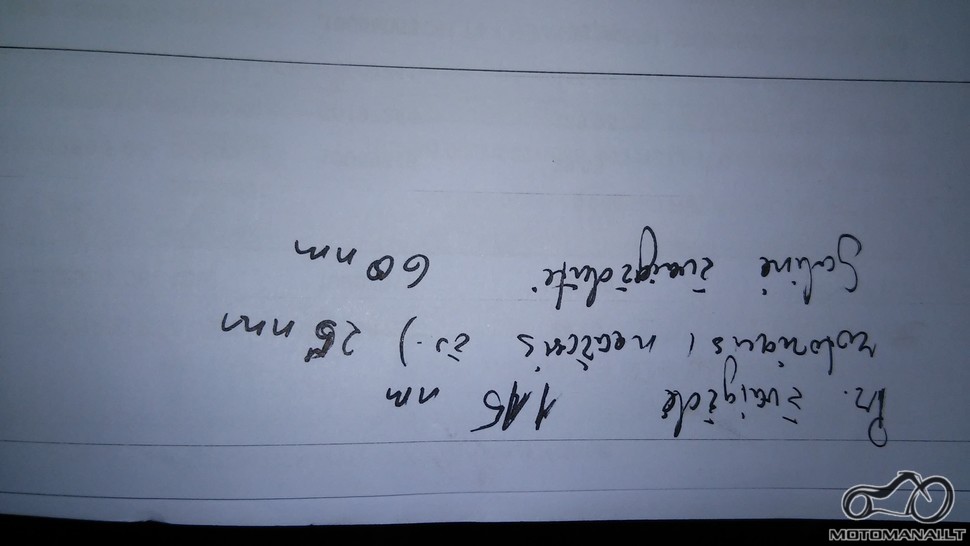 Pr. žvaigždė 115 nm
rotoriaus, nearčcris ž.) 25 nm
Galinė žvaigždutė 60 nm
MOTOMANAI.LT